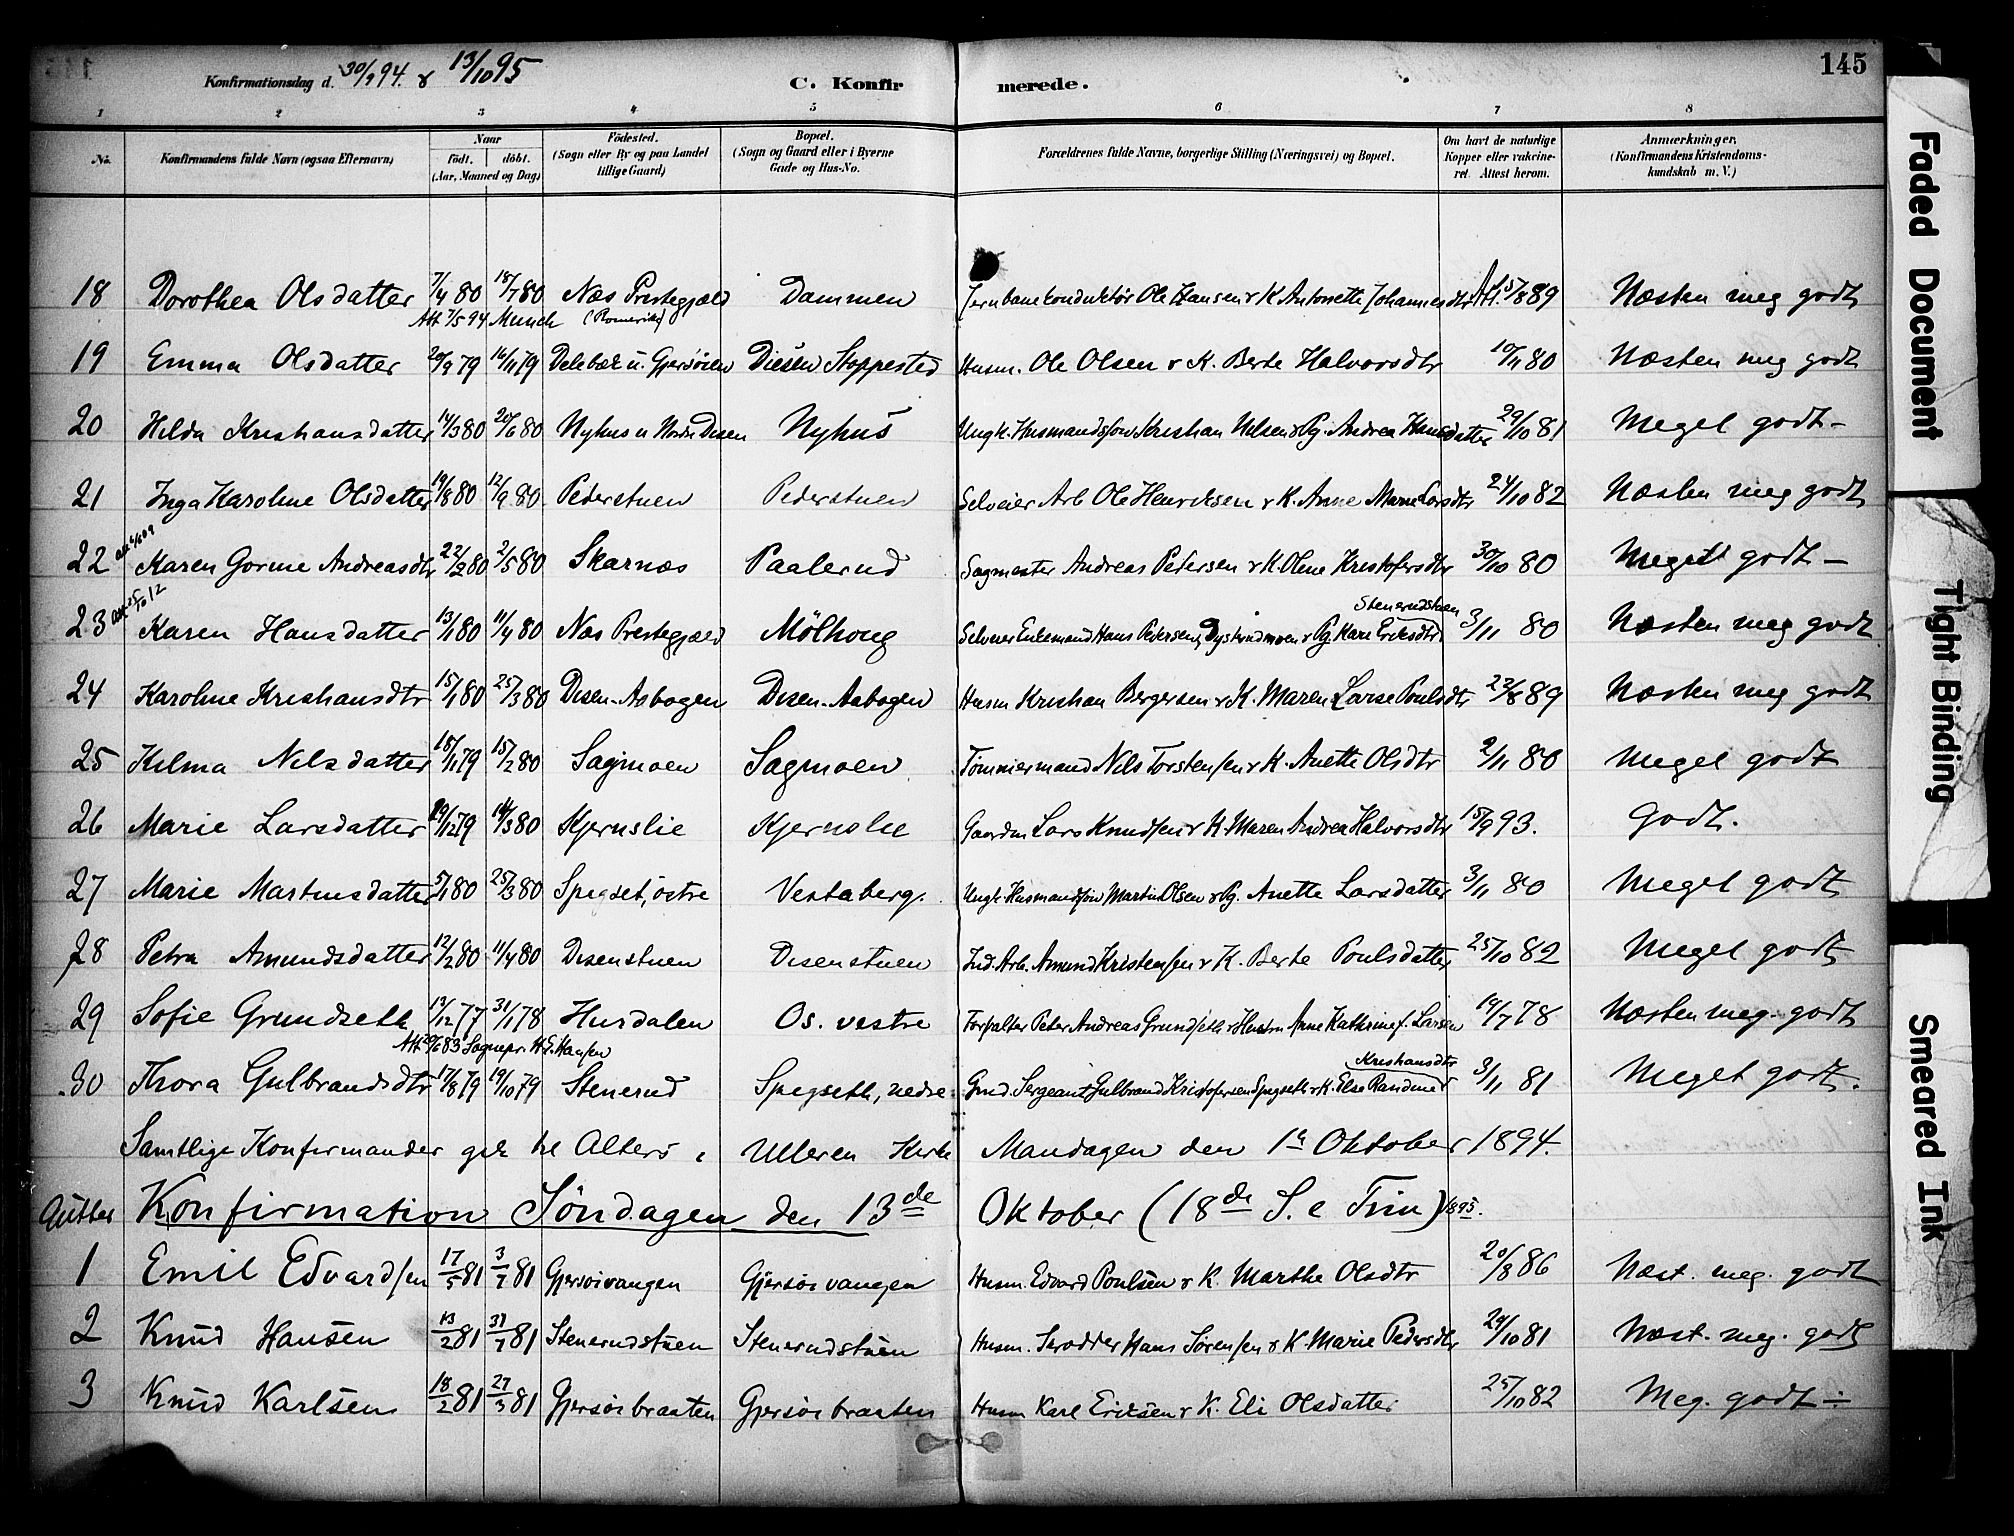 145
Konfirmationsdag d. 30/9 94. & 13/10 95
C. Konfirmerede.
1 2 3 4 5 6 7 8
No.
Konfirmandens fulde Navn (ogsaa Efternavn)
Naar
födt. döbt.
(Aar, Maaned og Dag)
Födested.
(Sogn eller By og paa Landet
tillige Gaard)
Bopæl.
(Sogn og Gaard eller i Byerne
Gade og Hus-No.
Forældrenes fulde Navne, borgerlige Stilling (Næringsvei) og Bopæl.
Om havt de naturlige
Kopper eller vakcineret. Attest herom.
Anmærkninger,
(Konfirmandens Kristendomskundskab m. V.)
18 Dorothea Olsdatter 7/4 80 18/7 80 Næs Prestegjæld Dammen Jernbanekonduktör Ole Hansen & K Antonette Johannesdtr Att. 15/8 89 Næsten meg godt
Att 7/5 94 Munch (Romerike)
19 Emma Olsdatter 20/9 79 16/11 79 Delebæk u. Gjersöien Disen Stoppested Husm. Ole Olsen & K. Berte Halvorsdtr 10/11 80 Næsten meg godt
20 Hilda Kristiansdatter 14/3 80 20/6 80 Nyhus u Nordre Disen Nyhus Ungk. Husmandssön Kristian Nilsen & Pg. Andrea Hansdatter 29/10 81 Meget godt -
21 Inga Karoline Olsdatter 19/8 80 12/9 80 Pederstuen Pederstuen Selveier Arb Ole Henriksen & K. Anne Marie Larsdtr 24/10 82 Næsten meg godt
22 Karen Gorine Andreasdtr 22/2 80 2/5 80 Skarnæs Paalerud Sagmester Andreas Petersen & K. Oline Kristofersdtr 30/10 80 Meget godt -
Stenerudstuen
23 Karen Hansdatter 13/1 80 11/4 80 Næs Prestegjæld Mölhoug Selveier Enkemand Hans Pedersen, Dystrudmoen & Pg. Kari Eriksdtr 3/11 80 Næsten meg godt
24 Karoline Kristiansdtr 15/1 80 25/3 80 Disen-Asbogen Disen-Aabogen Husm Kristian Bergersen & K. Maren Larse Poulsdtr 22/8 89 Næsten meg godt
25 Kilma Nilsdatter 18/11 79 15/2 80 Sagmoen Sagmoen Tömmermand Nils Torstensen & K. Anette Olsdtr 2/11 80 Meget godt
26 Marie Larsdatter 29/12 79 14/3 80 Kjernslie Kjernslie Gaardm Lars Knudsen & K. Maren Andrea Halvorsdtr 15/9 93. Godt.
27 Marie Martinsdatter 5/1 80 25/3 80 Spigset, östre Vestaberg. Ungk. Husmandssön Martin Olsen & Pg. Anette Larsdatter 3/11 80 Meget godt
28 Petra Amundsdatter 12/2 80 11/4 80 Disenstuen Disenstuen Ind. Arb. Amund Kristensen & K. Berte Poulsdatter 25/10 82 Meget godt
29 Sofie Grundseth 13/12 77 31/1 78 Husdalen Os. vestre Forvalter Peter Andreas Grundseth & Hustru Anne Kathrine f. Larsen 19/7 78 Næsten meg. godt
Att 20/6 83 Sognepr. H. G. Hansen
Kristiansdtr
30 Thora Gulbrandsdtr 17/8 79 19/10 79 Stenerud Spigseth, nedre Gmd. Sergeant Gulbrand Kristofersen Spigseth & K. Else Randine 3/11 81 Meget godt.
Samtlige Konfirmander gik til Alters i Ulleren Kirke Mandagen den 1ste Oktober 1894.
Gutter Konfirmation Söndagen den 13de Oktober (18de S. e Trin) 1895.
1 Emil Edvardsen 17/5 81 3/7 81 Gjersöivangen Gjersöivangen Husm. Edvard Poulsen & K. Marthe Olsdtr 20/8 86 Næst. meg. godt
2 Knud Hansen 13/2 81 31/7 81 Stenerudstuen Stenerudstuen Husm. Skrædder Hans Sörensen & K. Marie Pedersdtr 29/10 81 Næst. meg. godt
3 Knud Karlsen 18/2 81 27/3 81 Gjersöibraaten Gjersöibraaten Husm Karl Eriksen & K. Eli Olsdatter 25/10 82 Meg. godt ÷
Faded Document
Tight Binding
Smeared Ink